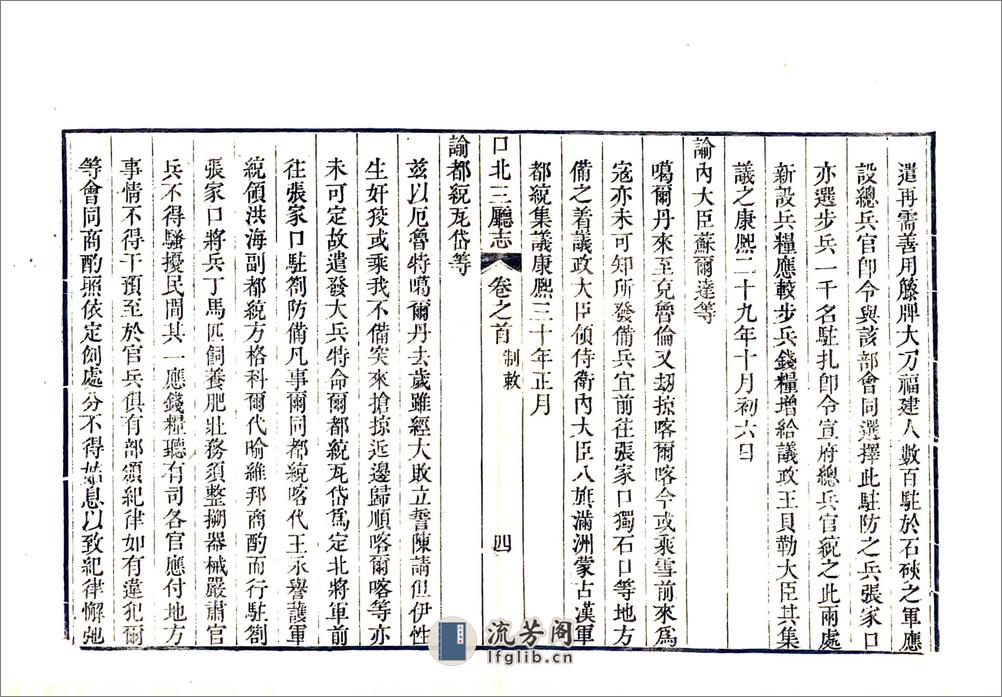 遣再需善用籐牌大刀福建人數百駐於石硤之軍應
設總兵官卽令與該部會同選擇此駐防之兵張家口
亦選步兵一千名駐扎卽令宣府總兵官統之此兩處
新設兵糧應較步兵錢糧增給議政王貝勒大臣其集
議之康熙二十九年十月初六日
諭內大臣蘇爾達等
噶爾丹來至克魯倫又刼掠喀爾喀今或乘雪前來爲
寇亦未可知所發備兵宜前往張家口獨石口等地方
備之着議政大臣領侍衛內大臣八旗滿洲蒙古漢軍
都統集議康熙三十年正月
口北三廳志 卷之首 制敕 四
諭都統瓦岱等
茲以厄魯特噶爾丹去歲雖經大敗立誓陳請但伊性
生奸狡或乘我不備突來搶掠近邊歸順喀爾喀等亦
未可定故遣發大兵特命爾都統瓦岱爲定北將軍前
往張家口駐劄防備凡事爾同都統喀代王永譽護軍
統領洪海副都統方格科爾代喻維邦商酌而行駐劄
張家口將兵丁馬匹飼養肥壯務須整搠器械嚴肅官
兵不得騷擾民間其一應錢糧聽有司各官應付地方
事情不得干預至於官兵俱有部頒紀律如有違犯爾
等會同商酌照依定例處分不得姑息以致紀律懈弛
流芳閣
lfglib.cn